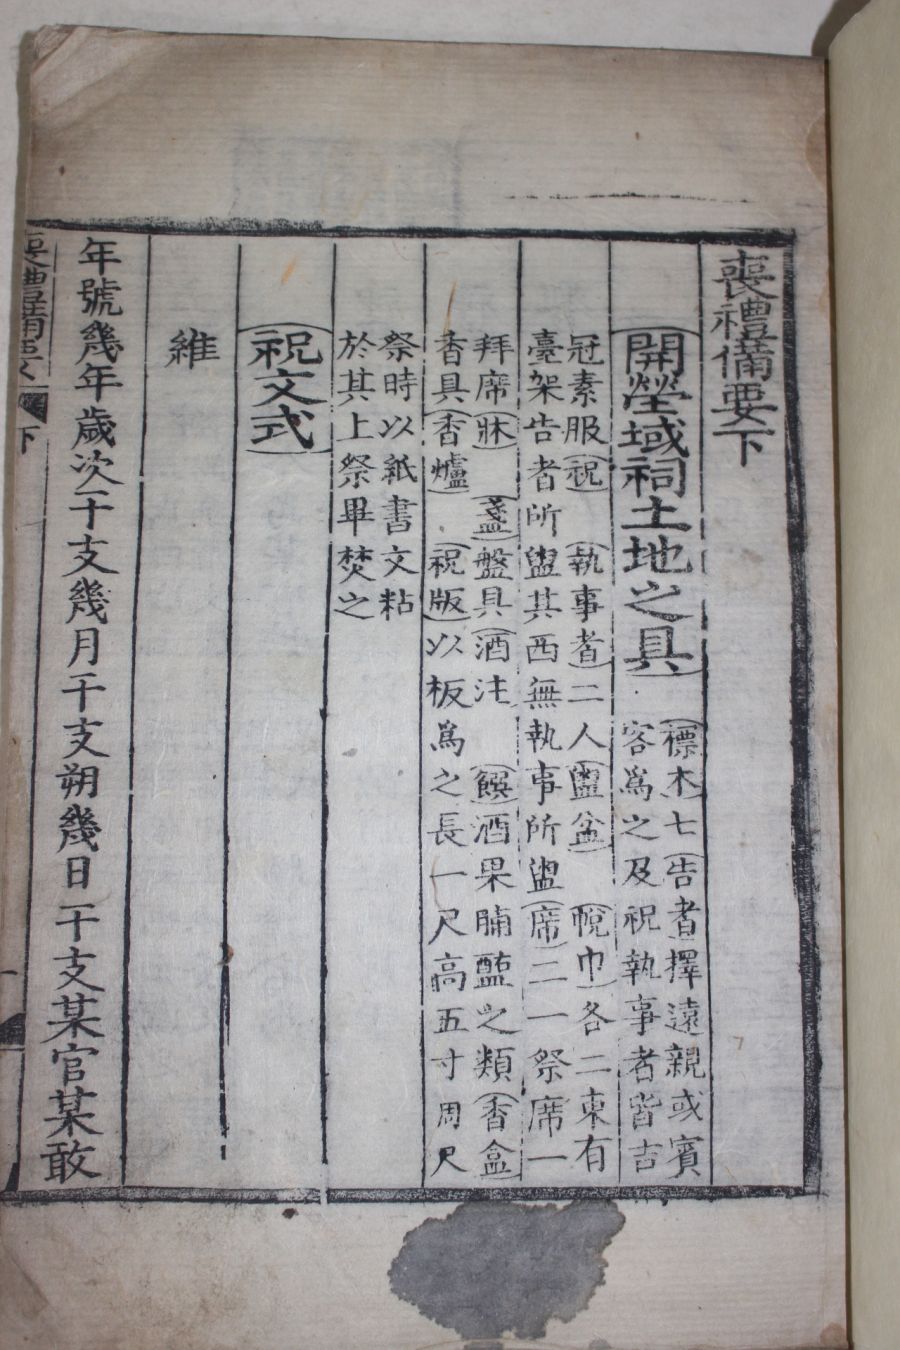 喪禮備要下
開塋域祠土地之具
標木七告者擇遠親或賓
客爲之及祝執事者皆吉
冠素服祝執事者二人盥盆帨巾各二東有
臺架告者所盥其西無執事所盥席二一祭席一
拜席牀盞盤具酒注饌酒果脯醢之類香盒
香具香爐祝版以板爲之長一尺高五寸周尺
祭時以紙書文粘
於其上祭畢焚之
祝文式
維
年號幾年歲次干支幾月干支朔幾日干支某官某敢
喪禮備要
下